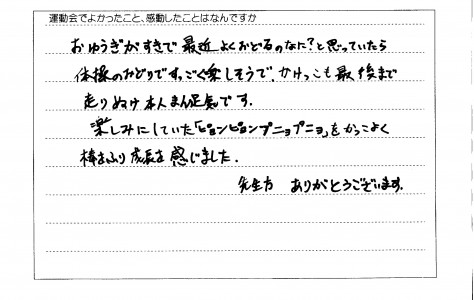 運動会でよかったこと、感動したことはなんですか
おゆうぎがすきで最近よくおどるのなに?と思っていたら
体操のおどりですっごく楽しそうで、かけっこも最後まで
走りぬけ本人まん足気です。
楽しみにしていた「ピョンピョンプニョプニョ」もかっこよく
棒をふり成長を感じました。
先生方 ありがとうございます。